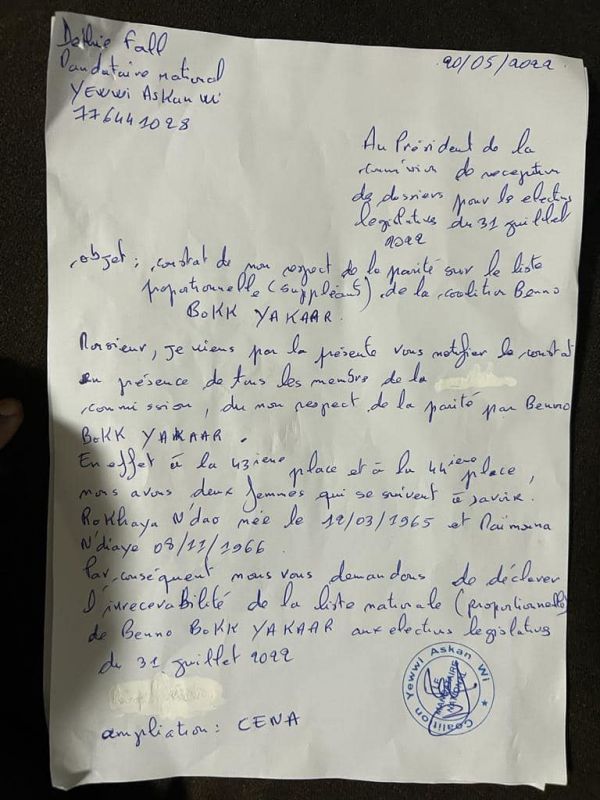 Déthie Fall
Mandataire national
YEWWI ASKAN WI
776441028
20/05/2022
Au Président de la
commission de reception
de dossiers pour les elections
legislatives du 31 juillet
2022
objet : constat de non respect de la parité sur la liste
propotionnelle (suppléants) de la coalition Benno
BOKK YAKAAR.
Monsieur, je viens par la présente vous notifier le constat
en présence de tous les membre de la
commission, du non respect de la parité par Benno
BOKK YAKAAR.
En effet à la 43ieme place et à la 44ieme place,
nous avons deux femmes qui se suivent à savoir.
Rokhaya N'dao née le 12/03/1965 et Maïmouna
N'diaye 08/11/1966.
Par conséquent nous vous demandons de déclarer
l'irrecevabilité de la liste nationale (proportionnelle)
de Benno BOKK YAKAAR aux elections legislatives
du 31 juillet 2022
Coalition Yewwi Askan Wi
LE
MANDATAIRE
NATIONAL
ampliation : CENA